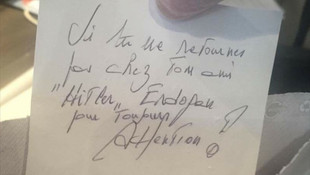 Si tu ne retournes
pas chez Ton ami
"HiTler" Erdogan
pour Toujours
Attention